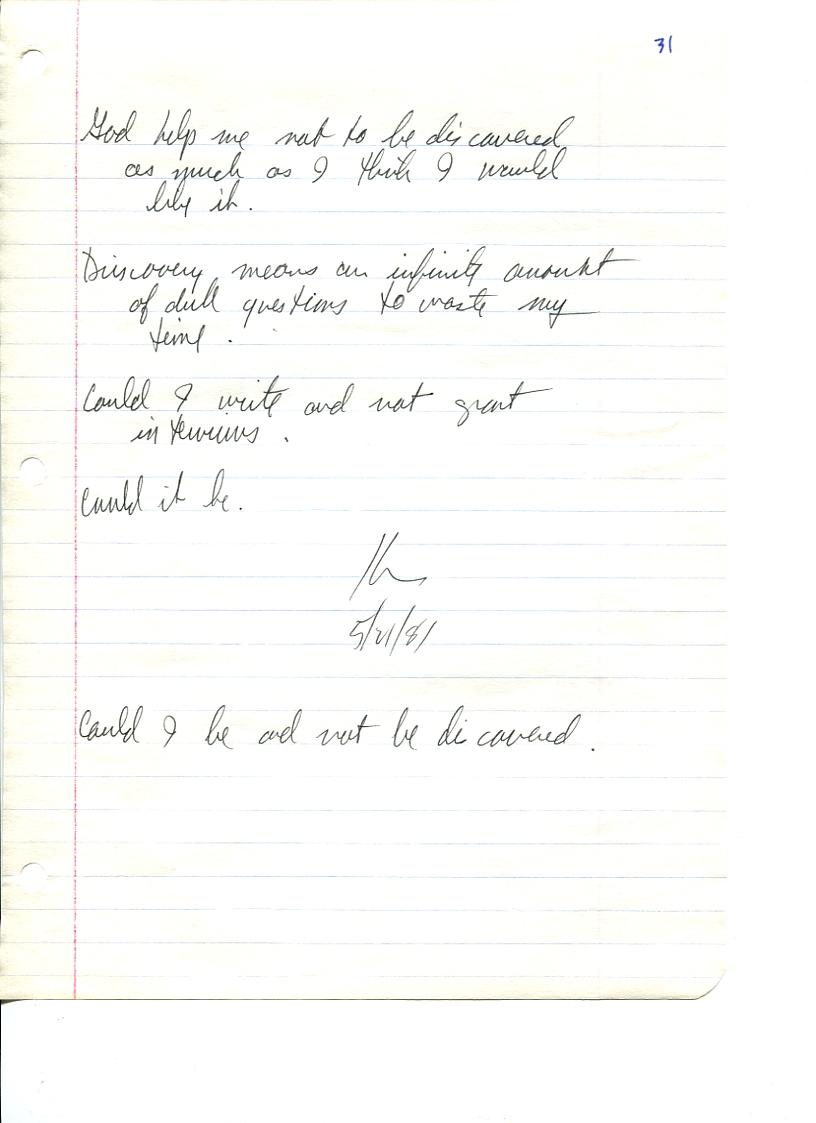 31
God help me not to be discovered
as much as I think I would
like it.
Discovery means an infinite amount
of dull questions to waste my
time.
Could I write and not grant
interviews.
Could it be.
5/21/81
Could I be and not be discovered.